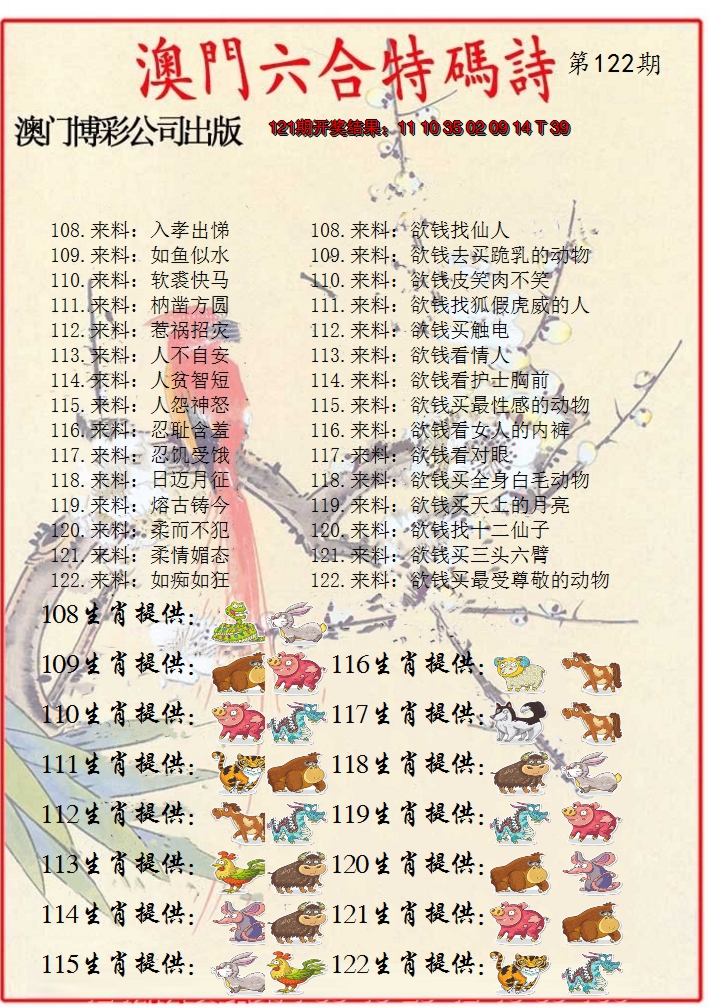 澳門六合特碼詩 第122期
澳门博彩公司出版 121期开奖结果：11 10 35 02 09 14 T 39
108.来料：入孝出悌 108.来料：欲钱找仙人
109.来料：如鱼似水 109.来料：欲钱去买跪乳的动物
110.来料：软裘快马 110.来料：欲钱皮笑肉不笑
111.来料：枘凿方圆 111.来料：欲钱找狐假虎威的人
112.来料：惹祸招灾 112.来料：欲钱买触电
113.来料：人不自安 113.来料：欲钱看情人
114.来料：人贫智短 114.来料：欲钱看护士胸前
115.来料：人怨神怒 115.来料：欲钱买最性感的动物
116.来料：忍耻含羞 116.来料：欲钱看女人的内裤
117.来料：忍饥受饿 117.来料：欲钱看对眼
118.来料：日迈月征 118.来料：欲钱买全身白毛动物
119.来料：熔古铸今 119.来料：欲钱买天上的月亮
120.来料：柔而不犯 120.来料：欲钱找十二仙子
121.来料：柔情媚态 121.来料：欲钱买三头六臂
122.来料：如痴如狂 122.来料：欲钱买最受尊敬的动物
108生肖提供：
109生肖提供： 116生肖提供：
110生肖提供： 117生肖提供：
111生肖提供： 118生肖提供：
112生肖提供： 119生肖提供：
113生肖提供： 120生肖提供：
114生肖提供： 121生肖提供：
115生肖提供： 122生肖提供：